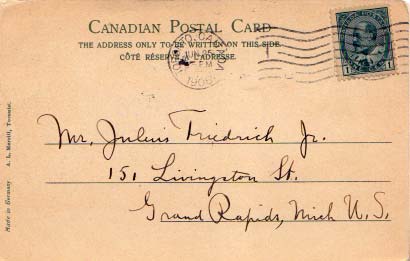 CANADIAN POSTAL CARD
THE ADDRESS ONLY TO BE WRITTEN ON THIS SIDE.
CÔTÉ RÉSERVÉ À L'ADRESSE.
TORONTO, CANADA
PM
1908
1
Mr. Julius Friedrich Jr.
151 Livingston St.
Grand Rapids, Mich U.S.
A. L. Merrill, Toronto.
Made in Germany